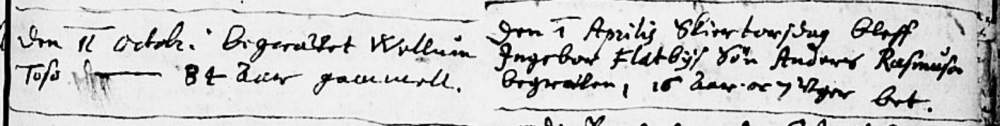 Den 11 Octobr: begravet Willum
Toso 84 Aar gammell.
Den 1 Aprilis Skiertorsdag bleff
Ingebor Flatbys Søn Anders Rasmusø
begraven, 16 Aar oc 7 Uger bet.